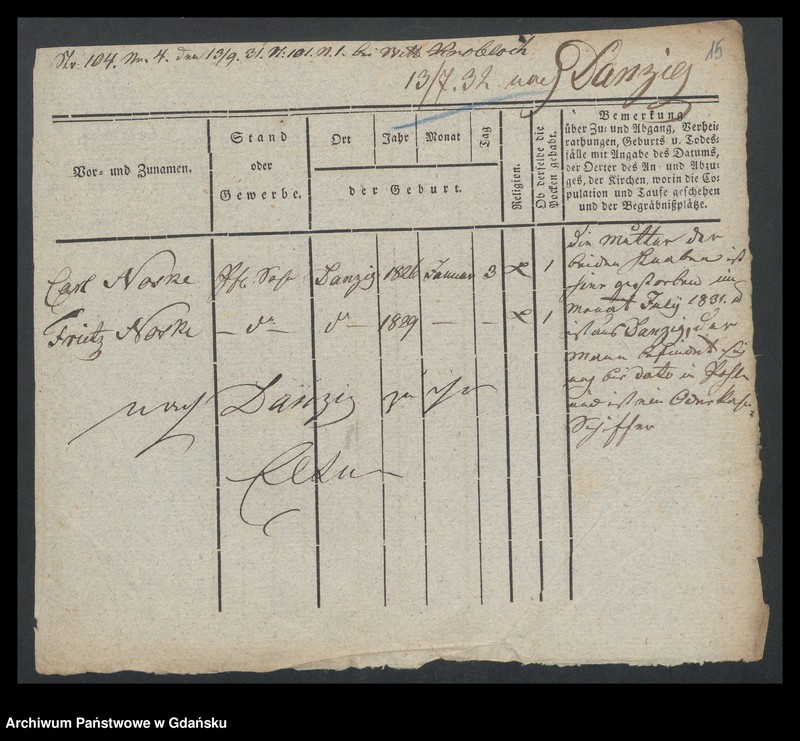 No. 104. Nr. 4. den 13/9. 31. N: 101. N. 1. bei Witt. Knobloch
15
13/7. 32 nach Danzig
Vor- und Zunamen.
Stand
oder
Gewerbe.
Ort
Jahr
Monat
Tag
der Geburt.
Religion.
Ob derselbe die
Pocken gehabt.
Bemerkung
über Zu- und Abgang, Verhei-
rathungen, Geburts u. Todes-
fälle mit Angabe des Datums,
der Oerter des An- und Abzu-
ges, der Kirchen, worin die Co-
pulation und Taufe geschehen
und der Begräbnißplätze.
Carl Noske Danzig 1826 Januar 3 1
Fritz Noske — do — do 1829 — — 1
die Mutter der
beiden Knaben ist
hier gestorben im
Monat July 1831.
ist aus Danzig, der
Mann befindet sich
bis dato in
und ist ein
Schiffer
nach Danzig
Archiwum Państwowe w Gdańsku